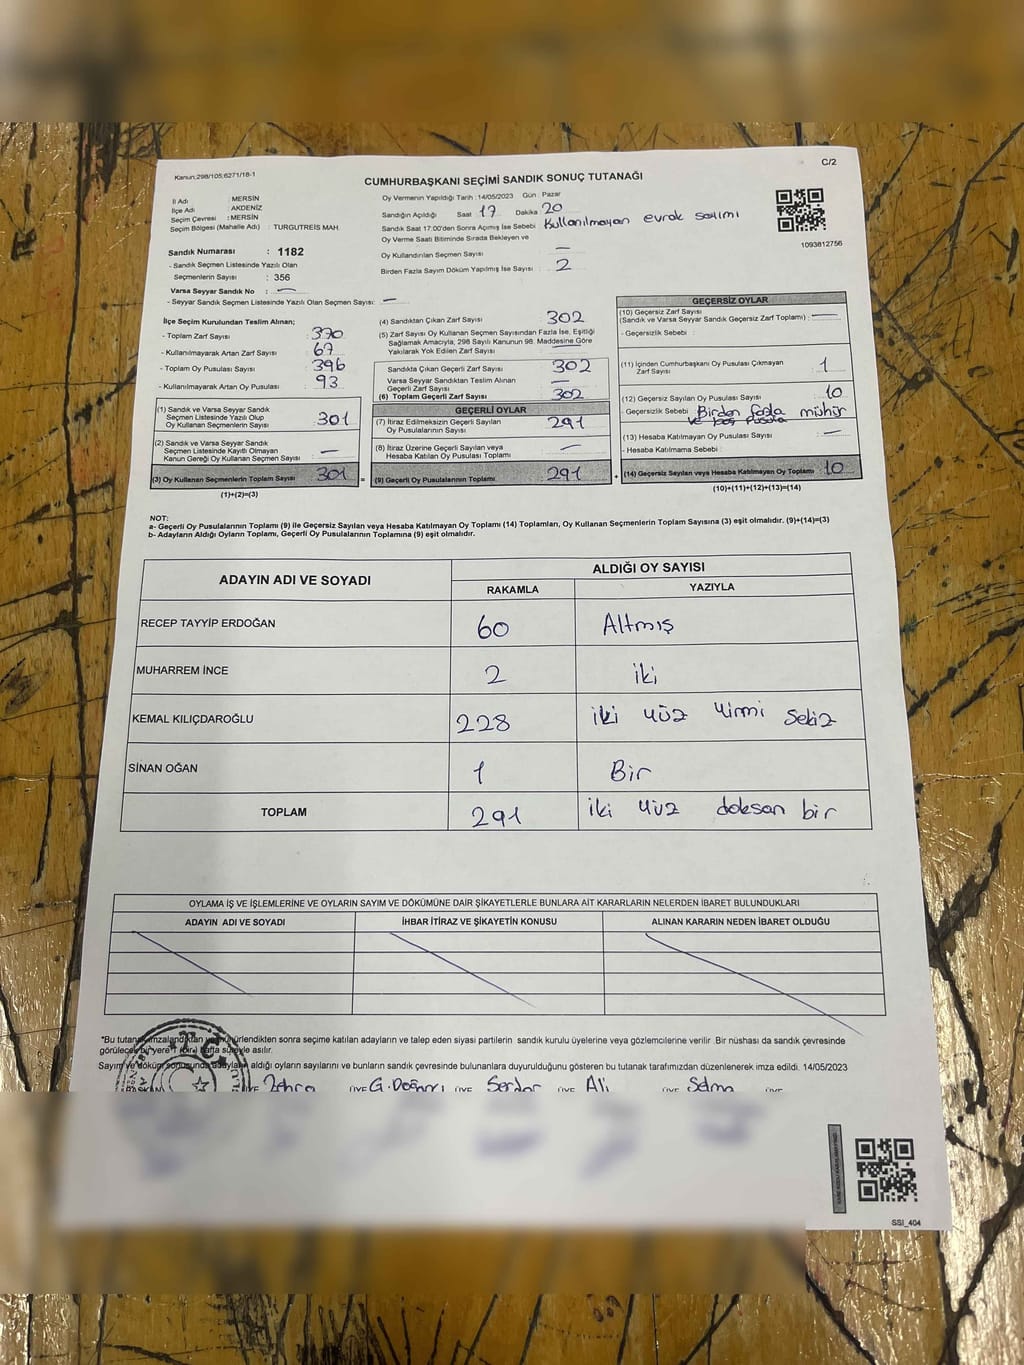 Kanun:298/105;6271/18-1
C/2
CUMHURBAŞKANI SEÇİMİ SANDIK SONUÇ TUTANAĞI
İl Adı : MERSİN
İlçe Adı : AKDENİZ
Seçim Çevresi : MERSİN
Seçim Bölgesi (Mahalle Adı) : TURGUTREİS MAH.
Sandık Numarası : 1182
- Sandık Seçmen Listesinde Yazılı Olan
Seçmenlerin Sayısı : 356
Varsa Seyyar Sandık No : —
- Seyyar Sandık Seçmen Listesinde Yazılı Olan Seçmen Sayısı: —
Oy Vermenin Yapıldığı Tarih : 14/05/2023 Gün : Pazar
Sandığın Açıldığı Saat 17 Dakika 20
Sandık Saat 17:00'den Sonra Açılmış İse Sebebi Kullanılmayan evrak sayımı
Oy Verme Saati Bitiminde Sırada Bekleyen ve
Oy Kullandırılan Seçmen Sayısı : —
Birden Fazla Sayım Döküm Yapılmış İse Sayısı : 2
1093812756
İlçe Seçim Kurulundan Teslim Alınan;
- Toplam Zarf Sayısı : 370
- Kullanılmayarak Artan Zarf Sayısı : 67
- Toplam Oy Pusulası Sayısı : 396
- Kullanılmayarak Artan Oy Pusulası : 93
(1) Sandık ve Varsa Seyyar Sandık
Seçmen Listesinde Yazılı Olup
Oy Kullanan Seçmenlerin Sayısı : 301
(2) Sandık ve Varsa Seyyar Sandık
Seçmen Listesinde Kayıtlı Olmayan
Kanun Gereği Oy Kullanan Seçmen Sayısı : —
(3) Oy Kullanan Seçmenlerin Toplam Sayısı : 301
(1)+(2)=(3)
(4) Sandıktan Çıkan Zarf Sayısı : 302
(5) Zarf Sayısı Oy Kullanan Seçmen Sayısından Fazla İse, Eşitliği
Sağlamak Amacıyla, 298 Sayılı Kanunun 98. Maddesine Göre
Yakılarak Yok Edilen Zarf Sayısı : —
Sandıkta Çıkan Geçerli Zarf Sayısı : 302
Varsa Seyyar Sandıktan Teslim Alınan
Geçerli Zarf Sayısı : —
(6) Toplam Geçerli Zarf Sayısı : 302
GEÇERLİ OYLAR
(7) İtiraz Edilmeksizin Geçerli Sayılan
Oy Pusulalarının Sayısı : 291
(8) İtiraz Üzerine Geçerli Sayılan veya
Hesaba Katılan Oy Pusulası Toplamı : —
(9) Geçerli Oy Pusulalarının Toplamı : 291
GEÇERSİZ OYLAR
(10) Geçersiz Zarf Sayısı
(Sandık ve Varsa Seyyar Sandık Geçersiz Zarf Toplamı) : —
- Geçersizlik Sebebi :
(11) İçinden Cumhurbaşkanı Oy Pusulası Çıkmayan
Zarf Sayısı : 1
(12) Geçersiz Sayılan Oy Pusulası Sayısı : 10
- Geçersizlik Sebebi : Birden fazla mühür
ve boş pusula
(13) Hesaba Katılmayan Oy Pusulası Sayısı : —
- Hesaba Katılmama Sebebi :
(14) Geçersiz Sayılan veya Hesaba Katılmayan Oy Toplamı : 10
(10)+(11)+(12)+(13)=(14)
NOT:
a- Geçerli Oy Pusulalarının Toplamı (9) ile Geçersiz Sayılan veya Hesaba Katılmayan Oy Toplamı (14) Toplamları, Oy Kullanan Seçmenlerin Toplam Sayısına (3) eşit olmalıdır. (9)+(14)=(3)
b- Adayların Aldığı Oyların Toplamı, Geçerli Oy Pusulalarının Toplamına (9) eşit olmalıdır.
ADAYIN ADI VE SOYADI
ALDIĞI OY SAYISI
RAKAMLA YAZIYLA
RECEP TAYYİP ERDOĞAN 60 Altmış
MUHARREM İNCE 2 iki
KEMAL KILIÇDAROĞLU 228 iki yüz yirmi sekiz
SİNAN OĞAN 1 Bir
TOPLAM 291 iki yüz doksan bir
OYLAMA İŞ VE İŞLEMLERİNE VE OYLARIN SAYIM VE DÖKÜMÜNE DAİR ŞİKAYETLERLE BUNLARA AİT KARARLARIN NELERDEN İBARET BULUNDUKLARI
ADAYIN ADI VE SOYADI İHBAR İTİRAZ VE ŞİKAYETİN KONUSU ALINAN KARARIN NEDEN İBARET OLDUĞU
*Bu tutanak imzalandıktan ve mühürlendikten sonra seçime katılan adayların ve talep eden siyasi partilerin sandık kurulu üyelerine veya gözlemcilerine verilir. Bir nüshası da sandık çevresinde
görülecek bir yere 1 (bir) hafta süreyle asılır.
Sayım ve döküm sonucunda adayların aldığı oyların sayılarını ve sandık çevresinde bulunanlara duyurulduğunu gösteren bu tutanak tarafımızdan düzenlenerek imza edildi. 14/05/2023
BAŞKAN ÜYE Zehra ÜYE G. Doğan ÜYE Serdar ÜYE Ali ÜYE Selma ÜYE
SSI_404